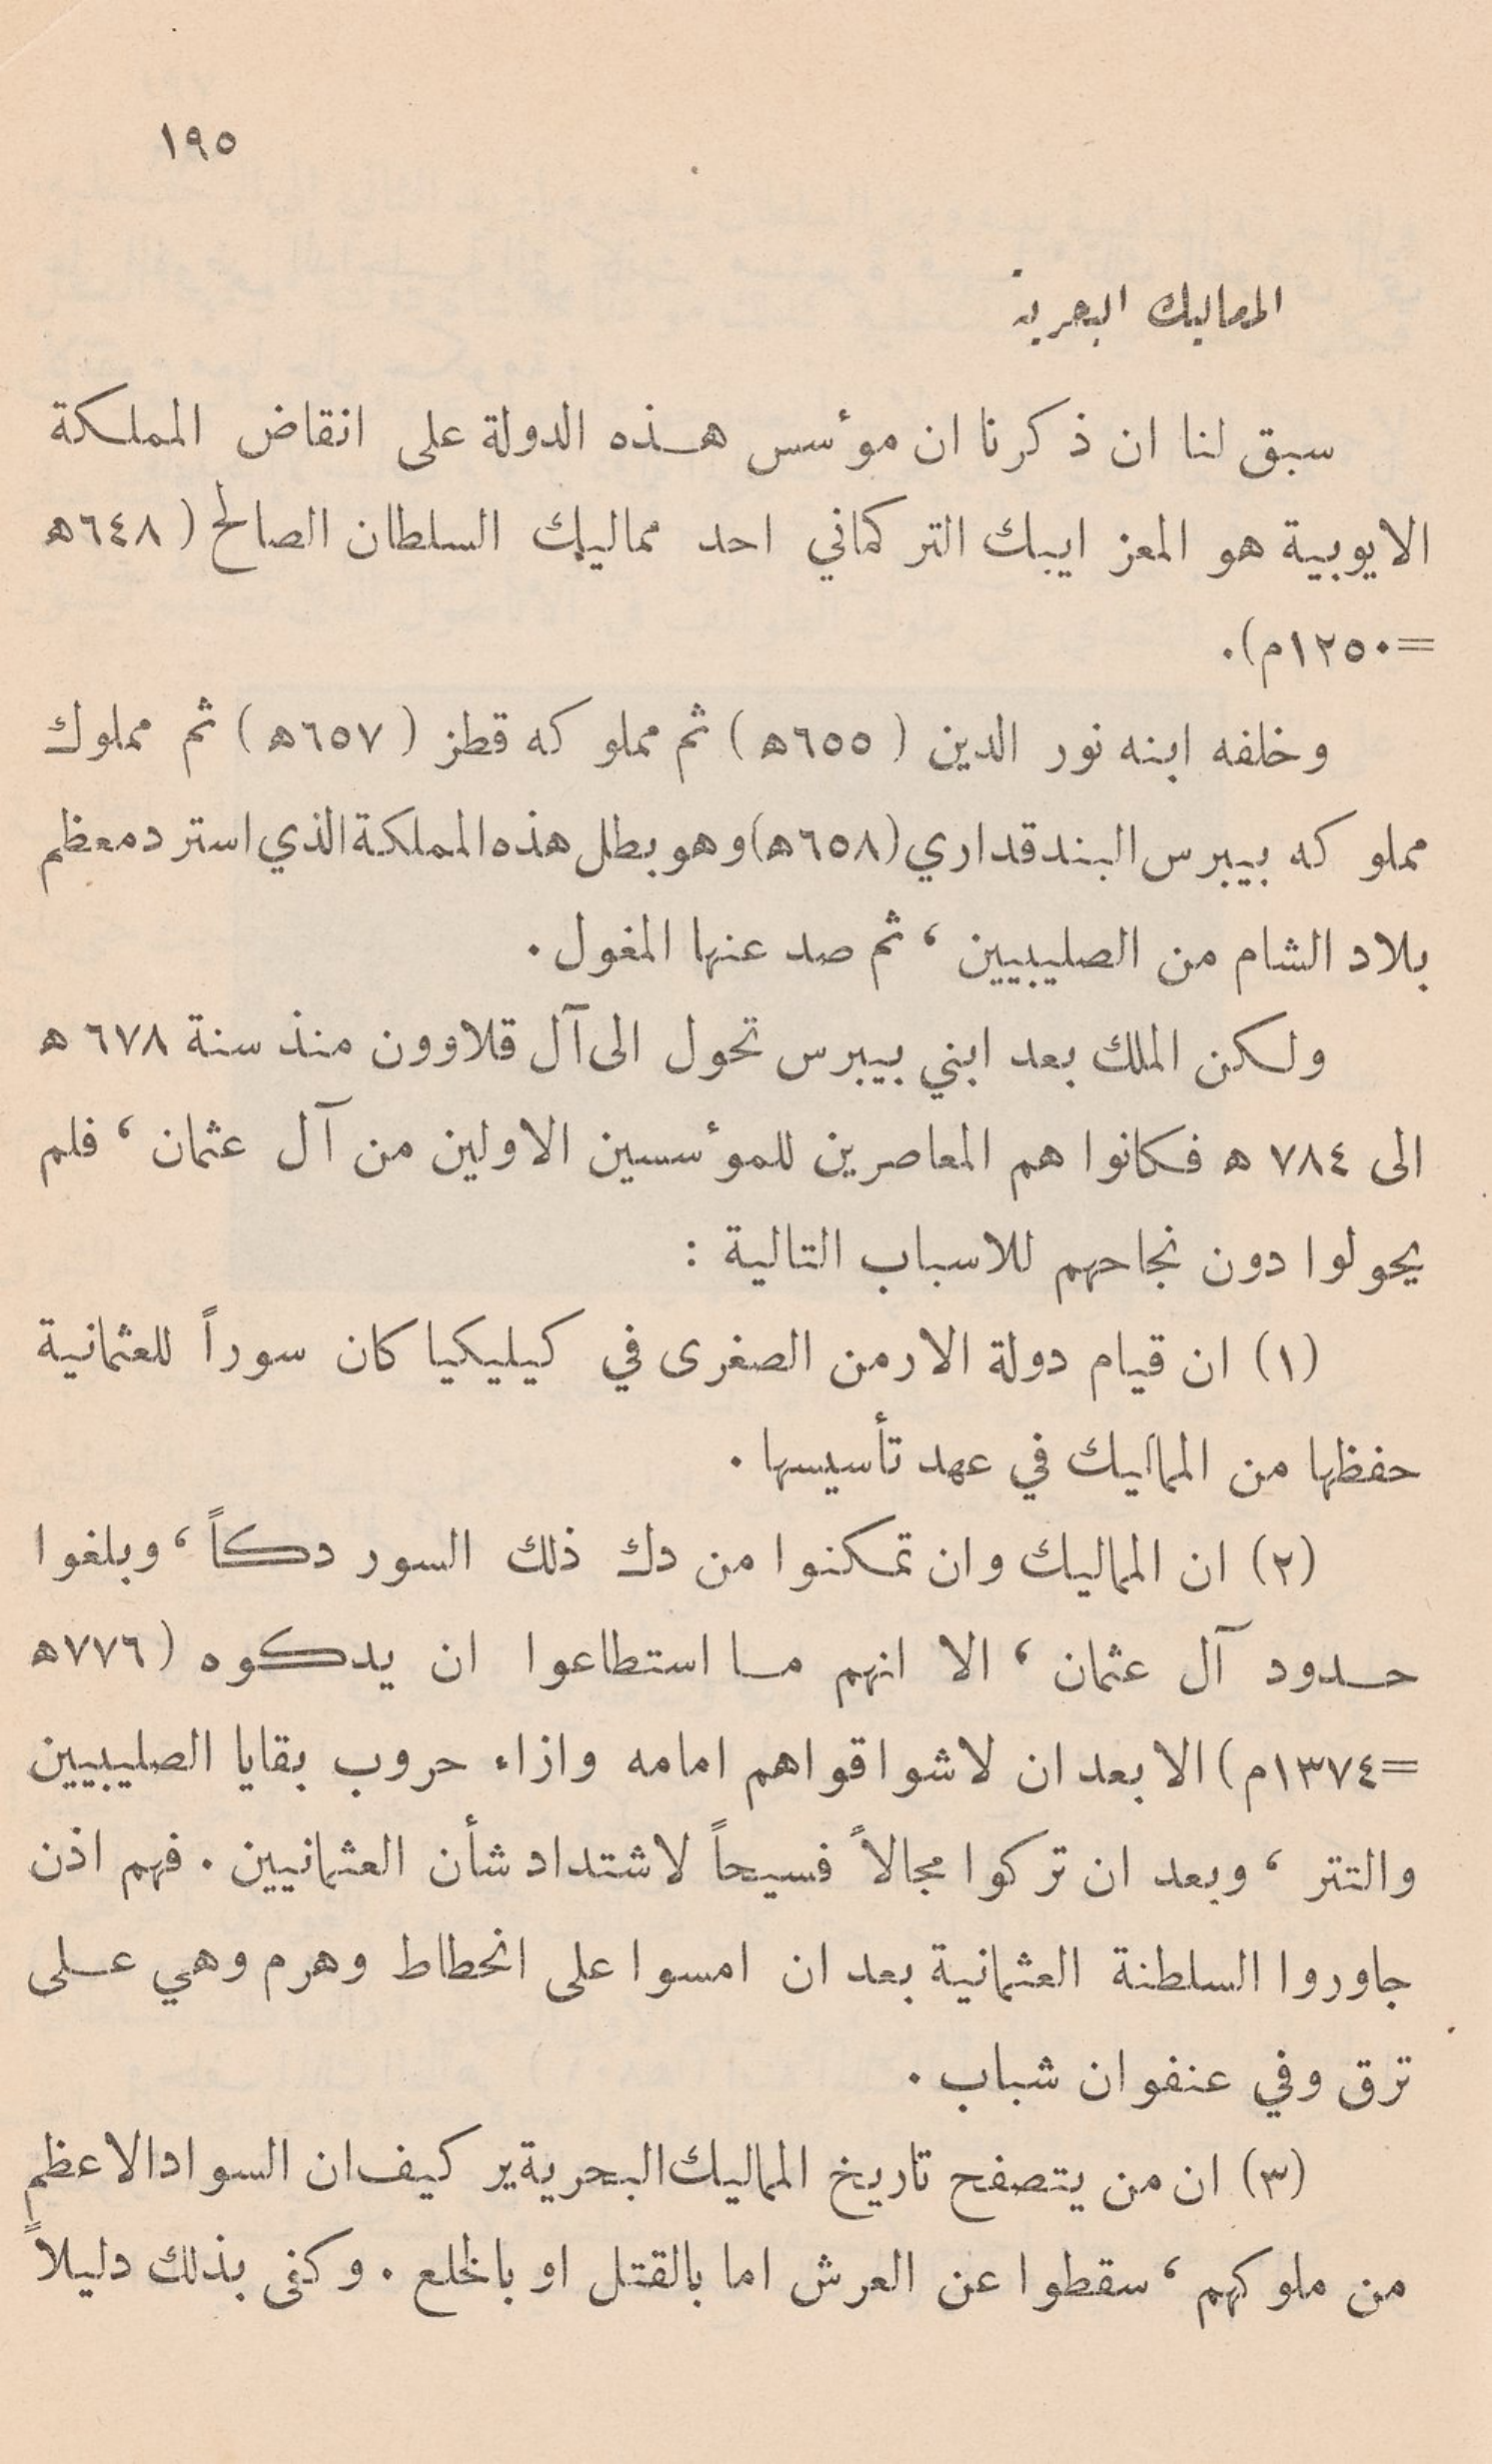 ١٩٥
المماليك البحرية
سبق لنا ان ذكرنا ان موٴسس هذه الدولة على انقاض المملكة
الايوبية هو المعز ايبك التركماني احد مماليك السلطان الصالح (٦٤٨ه
=١٢٥٠م).
وخلفه ابنه نور الدين (٦٥٥ه) ثم مملوكه قطز (٦٥٧ه) ثم مملوك
مملوكه بيبرس البندقداري (٦٥٨ه) وهو بطل هذه المملكة الذي استرد معظم
بلاد الشام من الصليبيين ، ثم صد عنها المغول .
ولكن الملك بعد ابني بيبرس تحول الى آل قلاوون منذ سنة ٦٧٨ ه
الى ٧٨٤ ه فكانوا هم المعاصرين للموٴسسين الاولين من آل عثمان ، فلم
يحولوا دون نجاحهم للاسباب التالية :
(١) ان قيام دولة الارمن الصغرى في كيليكيا كان سوراً للعثمانية
حفظها من المماليك في عهد تأسيسها .
(٢) ان المماليك وان تمكنوا من دك ذلك السور دكاً ، وبلغوا
حدود آل عثمان ، الا انهم ما استطاعوا ان يدكوه (٧٧٦ه
=١٣٧٤م) الا بعد ان لاشوا قواهم امامه وازاء حروب بقايا الصليبيين
والتتر ، وبعد ان تركوا مجالاً فسيحاً لاشتداد شأن العثمانيين . فهم اذن
جاوروا السلطنة العثمانية بعد ان امسوا على انحطاط وهرم وهي على
ترق وفي عنفوان شباب .
(٣) ان من يتصفح تاريخ المماليك البحرية ير كيف ان السواد الاعظم
من ملوكهم ، سقطوا عن العرش اما بالقتل او بالخلع . وكفى بذلك دليلاً